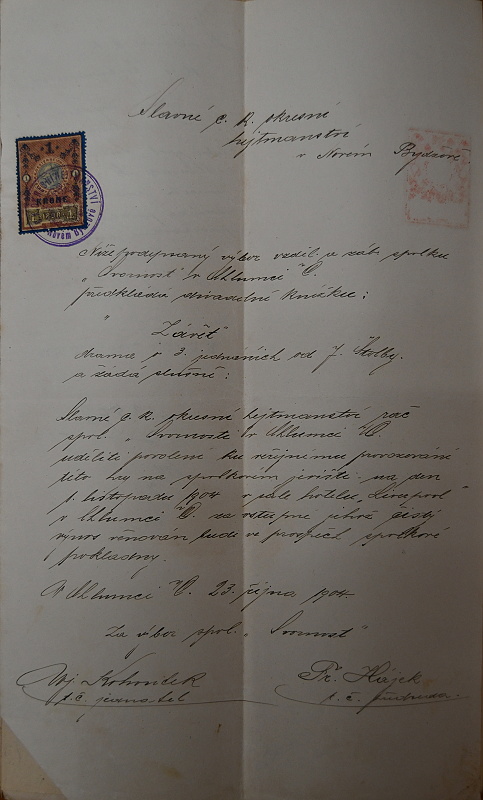 Slavné c. k. okresní
hejtmanství
v Novém Bydžově
1
KRONE
Níže podepsaný výbor vzděl. a záb. spolku
„Svornost" v Chlumci n/C.
předkládá divadelní knížku:
„Závěť"
drama o 3. jednáních od J. Štolby.
a žádá slušně:
Slavné c. k. okresní hejtmanství rač
spol. „Svornosti" v Chlumci n/C.
uděliti povolení ku veřejnému provozování
této hry na spolkovém jevišti na den
1. listopadu 1904 v sále hotelu „Liverpool"
v Chlumci n/C. za vstupné jehož čistý
výnos věnován bude ve prospěch spolkové
pokladny.
V Chlumci n/C. 23. října 1904.
Za výbor spol. „Svornost"
Fr. Hájek
t. č. jednatel
t. č. předseda.